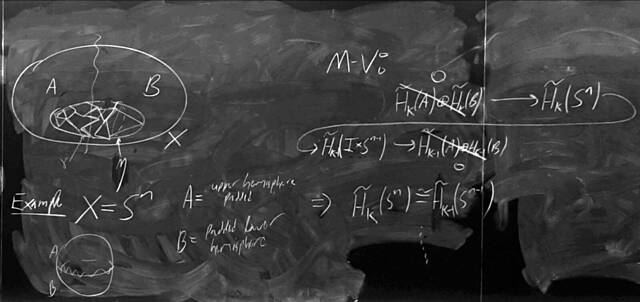 M-V:
A B
0
H̃ₖ(A)⊕H̃ₖ(B) → H̃ₖ(Sⁿ)
X
→ H̃ₖ₋₁(I×Sⁿ⁻¹) → H̃ₖ₋₁(A)⊕H̃ₖ₋₁(B)
0
Example X = Sⁿ
A = upper hemisphere padded
B = padded lower hemisphere
⇒ H̃ₖ(Sⁿ) ≅ H̃ₖ₋₁(Sⁿ⁻¹)
A
B